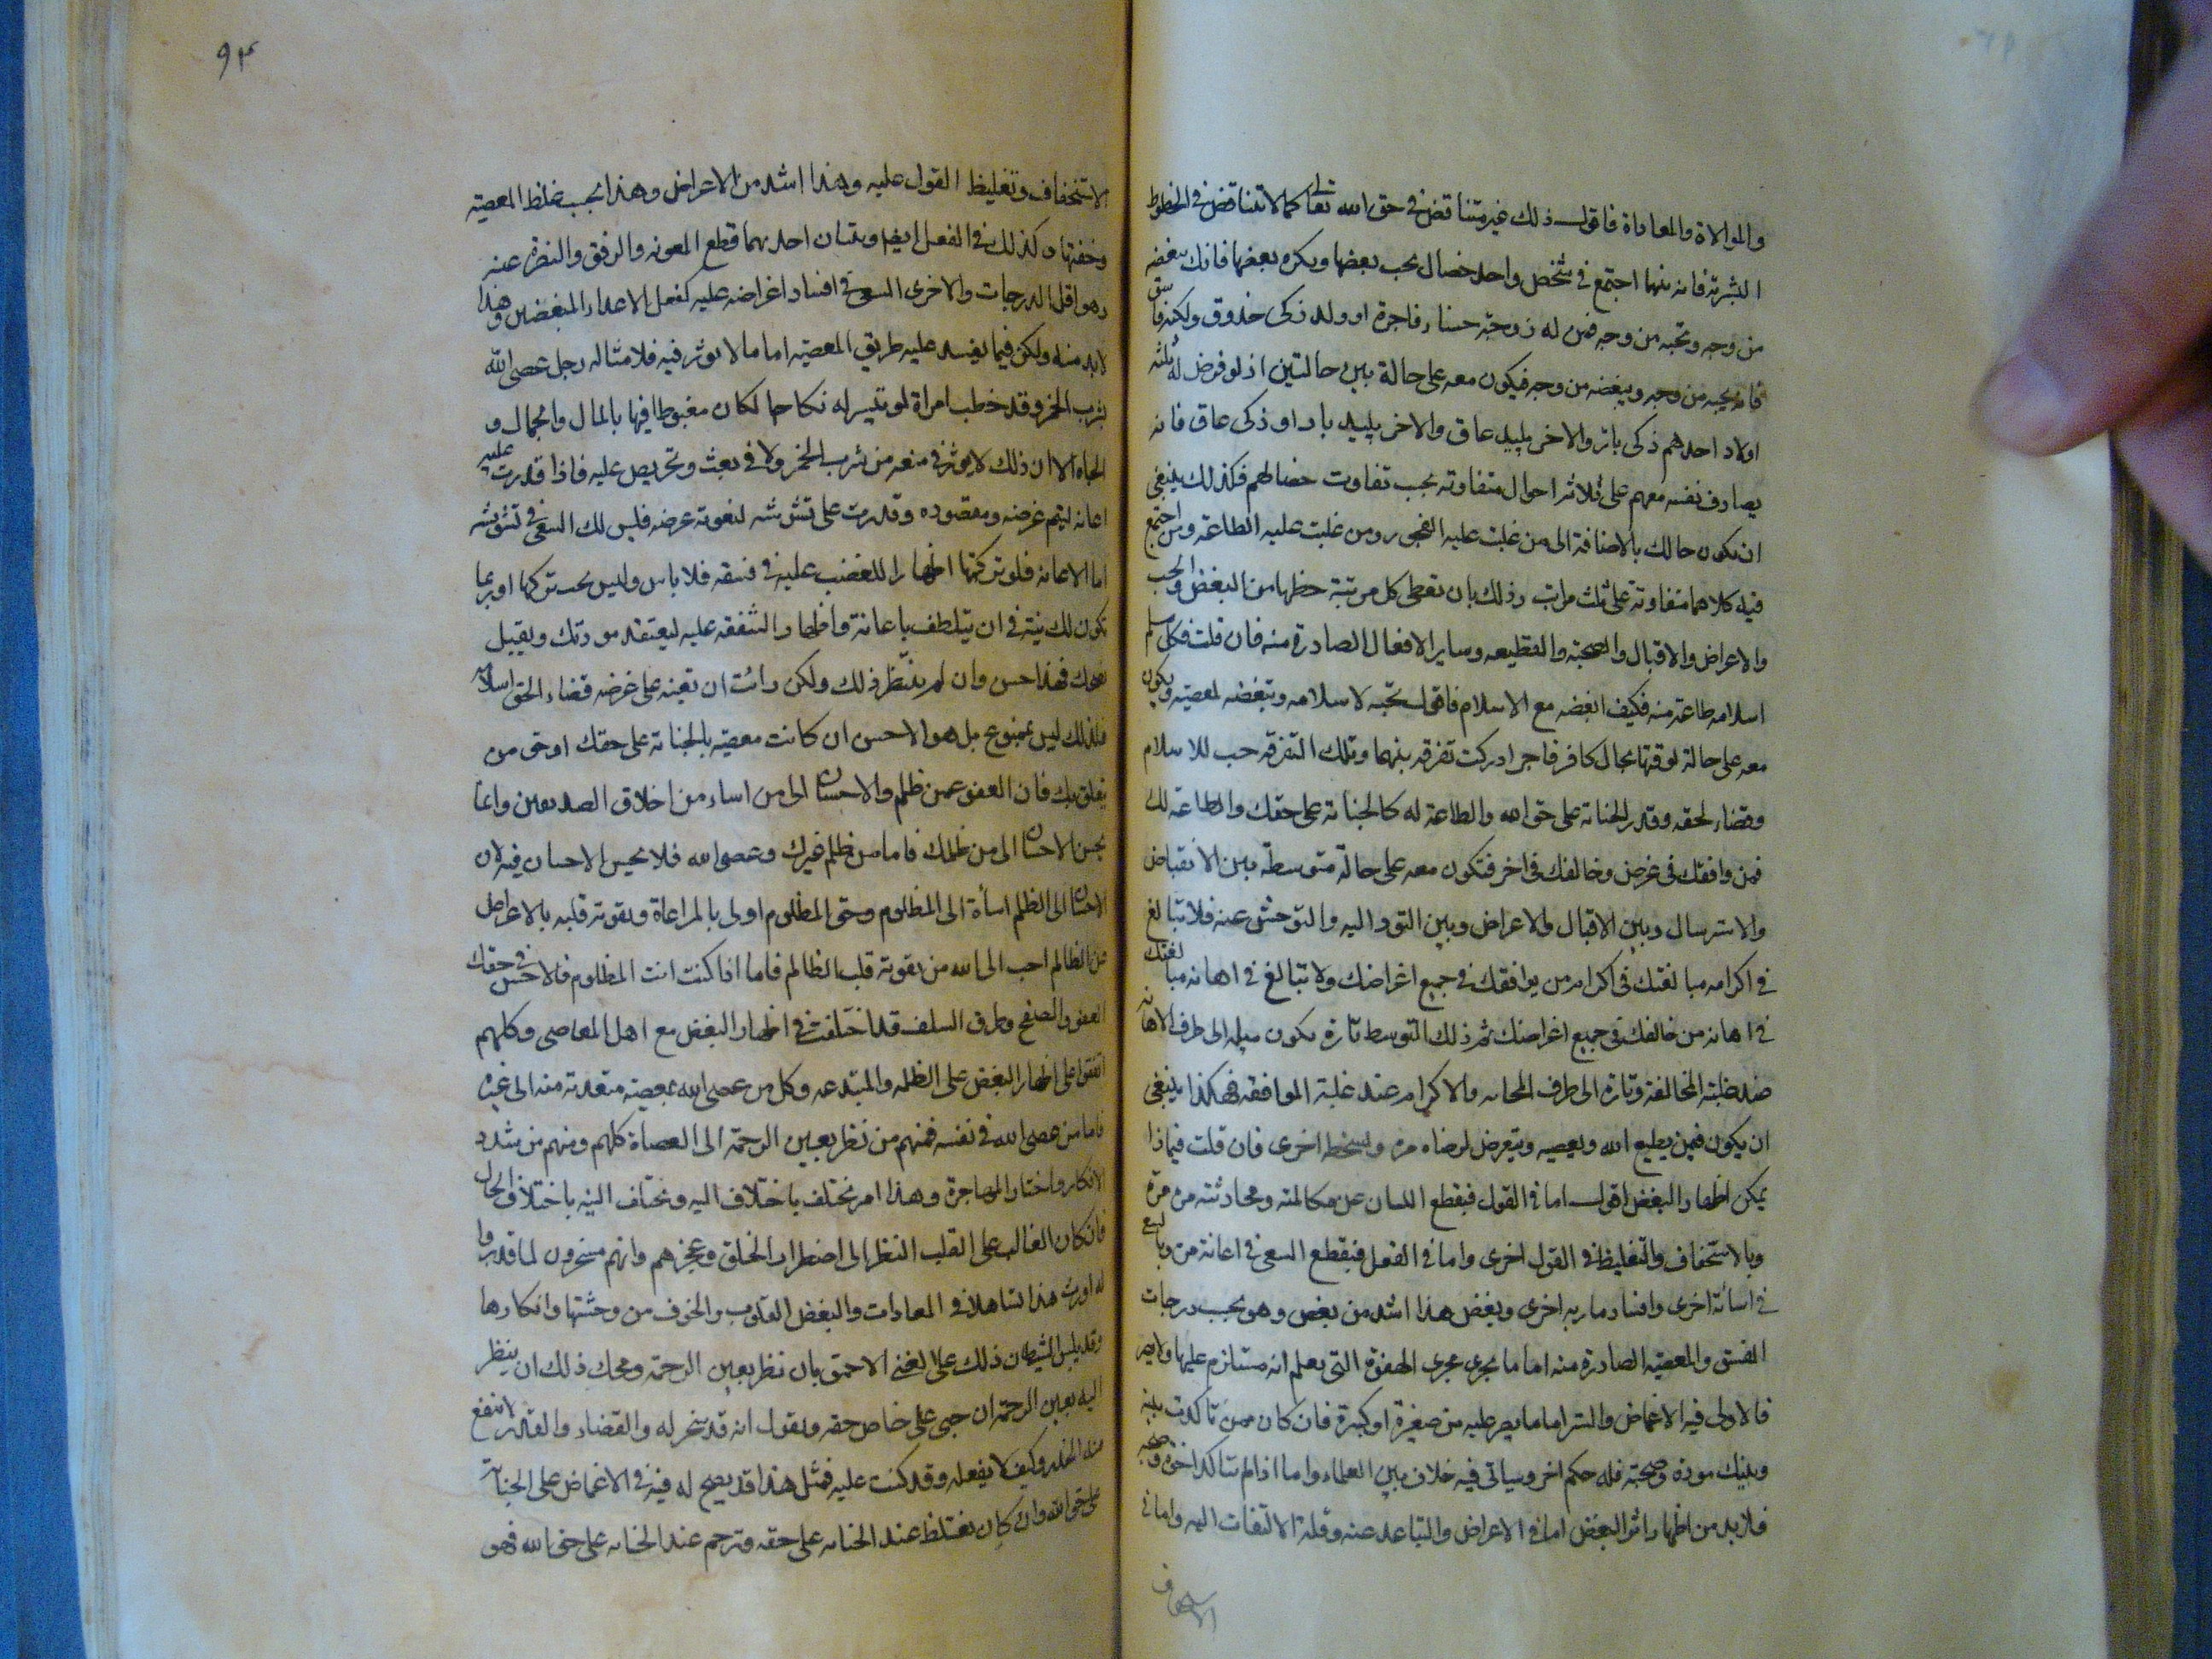 والموالاة والمعاداة فاقول ذلك غير متناقض فى حق الله تعالى كما لا تتناقض فى الحظوظ
البشرية فانه مهما اجتمع فى شخص واحد خصال يحب بعضها ويكره بعضها فانك تبغضه
من وجه وتحبه من وجه فمن له زوجة حسناء فاجرة او ولد ذكى خدوق ولكنه فاسق
فانه يحبه من وجه ويبغضه من وجه فيكون معه على حالة بين حالتين اذ لو فرض له ثلثه
اولاد احدهم ذكى بار والاخر بليد عاق والاخر بليد بار او ذكى عاق فانه
يصادف نفسه معهم على ثلاثه احوال متفاوته بحسب تفاوت خصالهم فكذلك ينبغى
ان يكون حالك بالاضافة الى من غلب عليه الفجور ومن غلبت عليه الطاعة ومن اجتمع
فيه كلاهما متفاوته على ثلث مراتب وذلك بان تعطى كل مرتبة حظها من البغض والحب
والاعراض والاقبال والصحبة والقطيعه وساير الافعال الصادرة منه فان قلت فكل مسلم
اسلامه طاعة منه فكيف ابغضه مع الاسلام فاقول تحبه لاسلامه وتبغضه لمعصيته ويكون
معه على حالة لو قستها بحال كافر فاجر ادركت تفرقه بينهما وتلك التفرقه حب للاسلام
وقضاء لحقه وقدر الجناية على حق الله والطاعة له كالجناية على حقك والطاعة لك
فمن وافقك فى غرض وخالفك فى اخر فتكون معه على حالة متوسطة بين الانقباض
والاسترسال وبين الاقبال والاعراض وبين التودد اليه والتوحش عنه فلا تبالغ
فى اكرامه مبالغتك فى اكرام من يوافقك فى جميع اغراضك ولا تبالغ فى اهانه مبالغتك
فى اهانه من خالفك فى جميع اغراضك ثم ذلك التوسط تارة يكون ميله الى طرف الاهانه
عند غلبة المخالفة وتارة الى طرف المحابه والاكرام عند غلبة الموافقه فهكذا ينبغى
ان يكون فيمن يطيع الله ويعصيه ويتعرض لرضاه مرة ولسخطه اخرى فان قلت فبماذا
يمكن اظهار البغض اقول اما فى القول فبقطع اللسان عن مكالمته ومحادثته مرة
وبالاستخفاف والتغليظ فى القول اخرى واما فى الفعل فبقطع السعى فى اعانة مرة وبالسع
فى اسائة اخرى وافساد ماربه اخرى وبعض هذا اشد من بعض وهو بحسب درجات
الفسق والمعصيه الصادرة منه اما ما يجرى مجرى الهفوة التى يعلم انه متندم عليها ولا يصر
فالاولى فيه الاغماض والستر اما ما يصر عليه من صغيرة او كبيرة فان كان ممن تاكدت بينه
وبينك مودة وصحبة فله حكم اخر وسياتى فيه خلاف بين العلماء واما اذا لم تتاكد اخوة وصحبة
فلا بد من اظهار اثر البغض اما فى الاعراض والتباعد عنه وقلة الالتفات اليه واما فى
الاستخفاف
٩٣
الاستخفاف وتغليظ القول عليه وهذا اشد من الاعراض وهذا بحسب غلظ المعصيه
وخفتها وكذلك فى الفعل ايضا رتبتان احدهما قطع المعونه والرفق والنصرة عنه
وهو اقل الدرجات والاخرى السعى فى افساد اغراضه عليه كفعل الاعداء المبغضين وهذا
لابد منه ولكن فيما يفسد عليه طريق المعصيه اما ما لا يوثر فيه فلا مثاله رجل عصى الله
بشرب الخمر وقد خطب امراة لو تيسر له نكاحها لكان مغبوطا فيها بالمال والجمال و
الجاه الا ان ذلك لا يوثر فى منعه من شرب الخمر ولا فى بعث وتحريص عليه فاذا قدرت على
اعانه ليتم غرضه ومقصوده وقدرت على تشويشه ليفوته غرضه فليس لك السعى فى تشويشه
اما الاعانه فلو تركتها اظهارا للغضب عليه فى فسقه فلا باس وليس يجب تركها او ربما
يكون لك نية فى ان يتلطف باعانة واظهار الشفقه عليه ليعتقد مودتك ويقبل
نصحك فهذا حسن وان لم يظهر ذلك ولكن رائت ان تعينه على غرضه قضاء لحق اسلامه
فلذلك ليس بممنوع بل هو الاحسن ان كانت معصيته بالجناية على حقك او حق من
يتعلق بك فان العفو عمن ظلم والاحسان الى من اساء من اخلاق الصديقين وانما
يحسن الاحسان الى من ظلمك فاما من ظلم غيرك وعصى الله فلا يحسن الاحسان فيه لان
الاحسان الى الظلم اسأة الى المظلوم وحق المظلوم اولى بالمراعاة وتقوية قلبه بالاعراض
عن الظالم احب الى الله من تقوية قلب الظالم فاما اذا كنت انت المظلوم فالاحسن فى حقك
العفو والصفح وطرق السلف قد اختلفت فى اظهار البغض مع اهل المعاصى وكلهم
اتفقوا على اظهار البغض على الظلمه والمبتدعه وكل من عصى الله بمعصيه متعدية منه الى غيره
فاما من عصى الله فى نفسه فمنهم من نظر بعين الرحمة الى العصاة كلهم ومنهم من شدد
الانكار واختار المهاجرة وهذا امر يختلف باختلاف النيه وتختلف النيه باختلاف الحال
فان كان الغالب على القلب النظر الى اضطرار الخلق وعجزهم وانهم مسخرون لما قدروا
له اورث هذا تساهلا فى المعادات والبغض القلوب والخوف من وحشتها وانكارها
وقد يلبس الشيطان ذلك على الغنى الاحمق بان نظر بعين الرحمة ومحك ذلك ان ينظر
اليه بعين الرحمة ان جنى على خاص حقه ويقول انه قد سخر له والقضاء والقدر لا ينفع
منه الحذر وكيف لا يفعله وقد كتب عليه فمثل هذا قد يصح له فيه فى الاغماض على الجناية
على حق الله وان كان يغتاظ عند الجنايه على حقه وترحم عند الجنايه على حق الله فهو